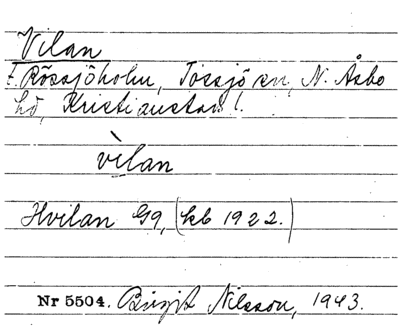 Vilan
F. Rössjöholm, Tossjö sn, N. Åsbo
hd, Kristianstads l.
vìlan
Hvilan G9, (kb 1922.)
Nr 5504. Birgit Nilsson, 1943.